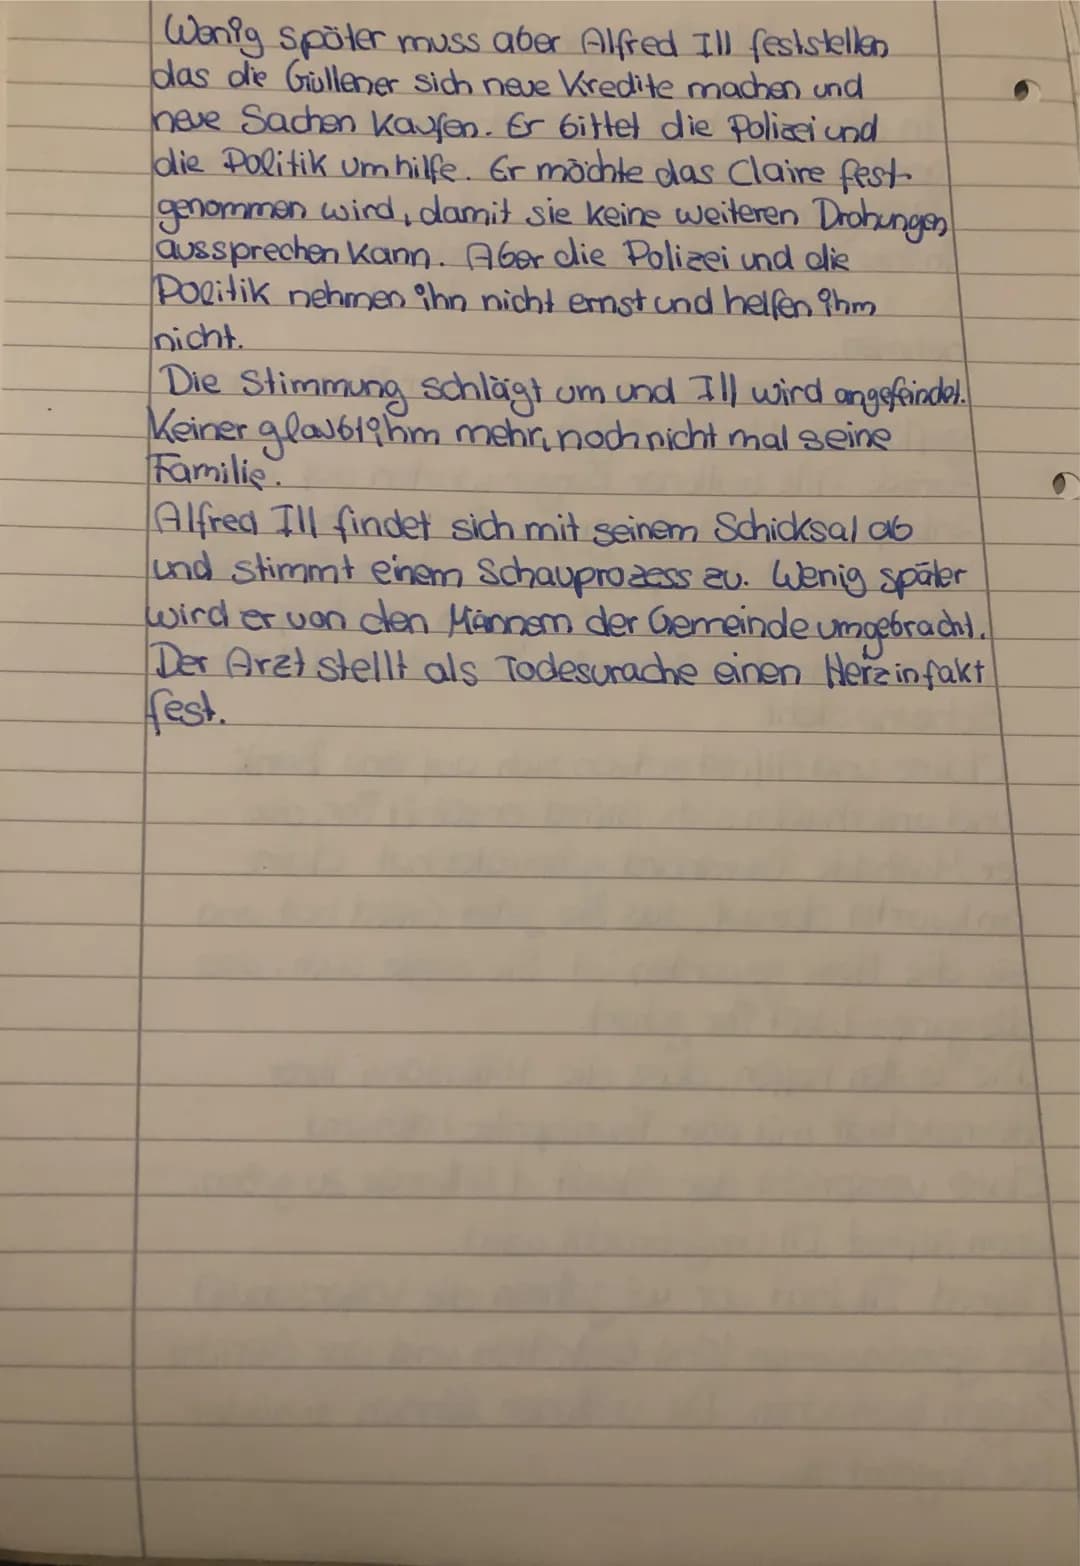 Wenig später muss aber Alfred Ill feststellen
das die Güllener sich neue Kredite machen und
neue Sachen Kaufen. Er bittet die Polizei und
die Politik um hilfe. Er möchte das Claire fest-
genommen wird, damit sie keine weiteren Drohungen
aussprechen kann. Aber die Polizei und die
Politik nehmen ihn nicht ernst und helfen ihm
nicht.
Die Stimmung schlägt um und Ill wird angefeindet.
Keiner glaubt ihm mehr, noch nicht mal seine
Familie.
Alfred Ill findet sich mit seinem Schicksal ab
und stimmt einem Schauprozess zu. Wenig später
wird er von den Männern der Gemeinde umgebracht.
Der Arzt stellt als Todesurache einen Herzinfakt
fest.